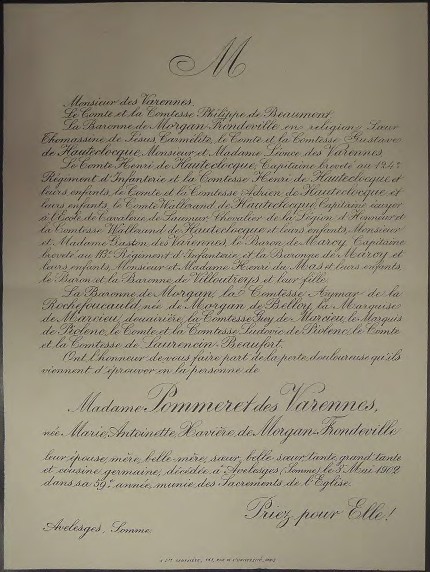 M
Monsieur des Varennes,
Le Comte et la Comtesse Philippe de Beaumont,
La Baronne de Morgan-Frondeville en religion Sœur
Thomassine de Jésus, Carmélite, le Comte et la Comtesse Gustave
de Hauteclocque, Monsieur et Madame Léonce des Varennes,
Le Comte Henri de Hauteclocque, Capitaine breveté au 124e
Régiment d'Infanterie et la Comtesse Henri de Hauteclocque et
leurs enfants, le Comte et la Comtesse Adrien de Hauteclocque et
leurs enfants, le Comte Wallerand de Hauteclocque, Capitaine écuyer
à l'École de Cavalerie de Saumur, Chevalier de la Légion d'Honneur et
la Comtesse Wallerand de Hauteclocque et leurs enfants, Monsieur
et Madame Gaston des Varennes, le Baron de Maroy, Capitaine
breveté au Régiment d'Infanterie, et la Baronne de Maroy et
leurs enfants, Monsieur et Madame Henri de Mas et leurs enfants,
le Baron et la Baronne de Villoutreys et leur fille,
La Baronne de Morgan, la Comtesse Aymar de la
Rochefoucauld, née de Morgan de Belloy, la Marquise
de Marcieu, douairière, la Comtesse Guy de Marcieu, le Marquis
de Piolenc, le Comte et la Comtesse Ludovic de Piolenc, le Comte
et la Comtesse de Laurencin Beaufort,
Ont l'honneur de vous faire part de la perte douloureuse qu'ils
viennent d'éprouver en la personne de
Madame Pommeret des Varennes,
née Marie Antoinette Xavière de Morgan-Frondeville
leur épouse, mère, belle-mère, sœur, belle-sœur, tante, grand'tante
et cousine germaine, décédée à Avelesges (Somme) le 5 Mai 1902
dans sa 59e année, munie des Sacrements de l'Eglise.
Priez pour Elle!
Avelesges, Somme.